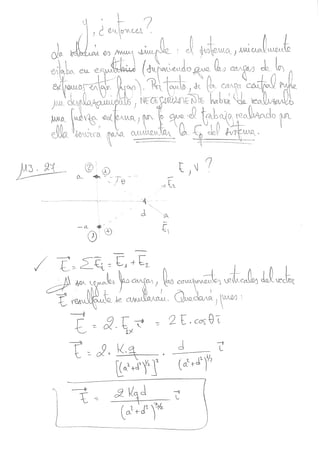 Y, ¿entonces?
La solución es muy simple: el sistema, inicialmente
estaba en equilibrio (suponiendo que las cargas de los
extremos están fijas). Por tanto, si la carga central sufre
un desplazamiento, NECESARIAMENTE habrá de realizarlo
una fuerza externa, por lo que el trabajo realizado por
ella servirá para aumentar la Ep del sistema.
113.27
E, V?
a
θ
E₂
d
-a
E₁
✓ E = ΣEi = E₁ + E₂
Al ser iguales las cargas, las componentes verticales del vector
E resultante se anularán. Quedará, pues:
E = 2·E₁ₓ i = 2E·cosθ i
E = 2· K·q / [(a²+d²)^1/2]² · d / (a²+d²)^1/2 i
E = 2Kqd / (a²+d²)^3/2 i